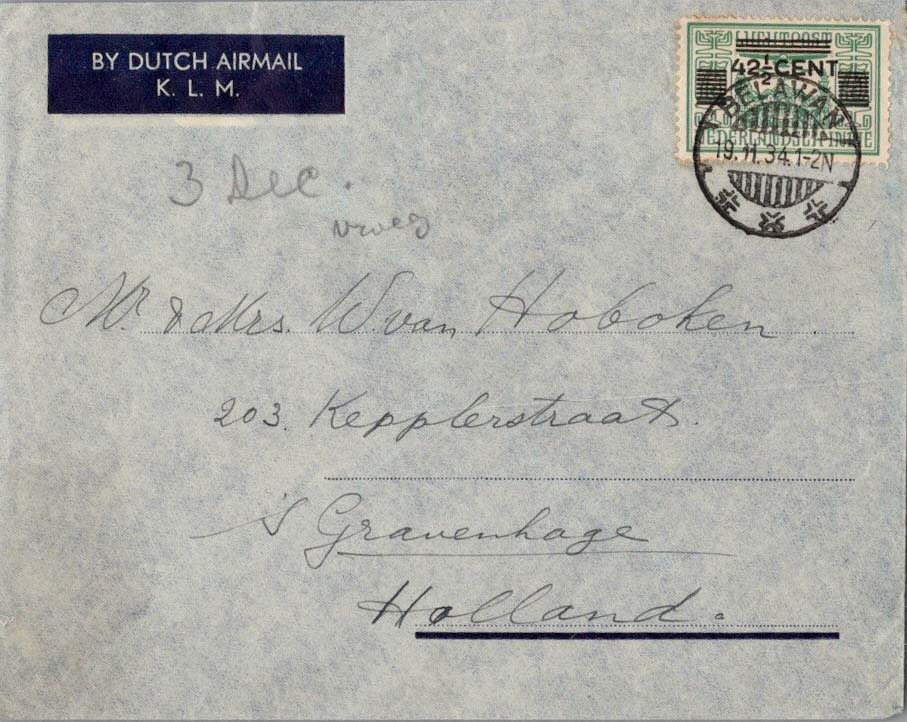 BY DUTCH AIRMAIL
K. L. M.
LUCHTPOST
42½ CENT
BELAWAN
19.11.34.1-2N
3 Dec.
vroeg
Mr. & Mrs. W. van Hoboken.
203. Kepplerstraat.
's Gravenhage
Holland.